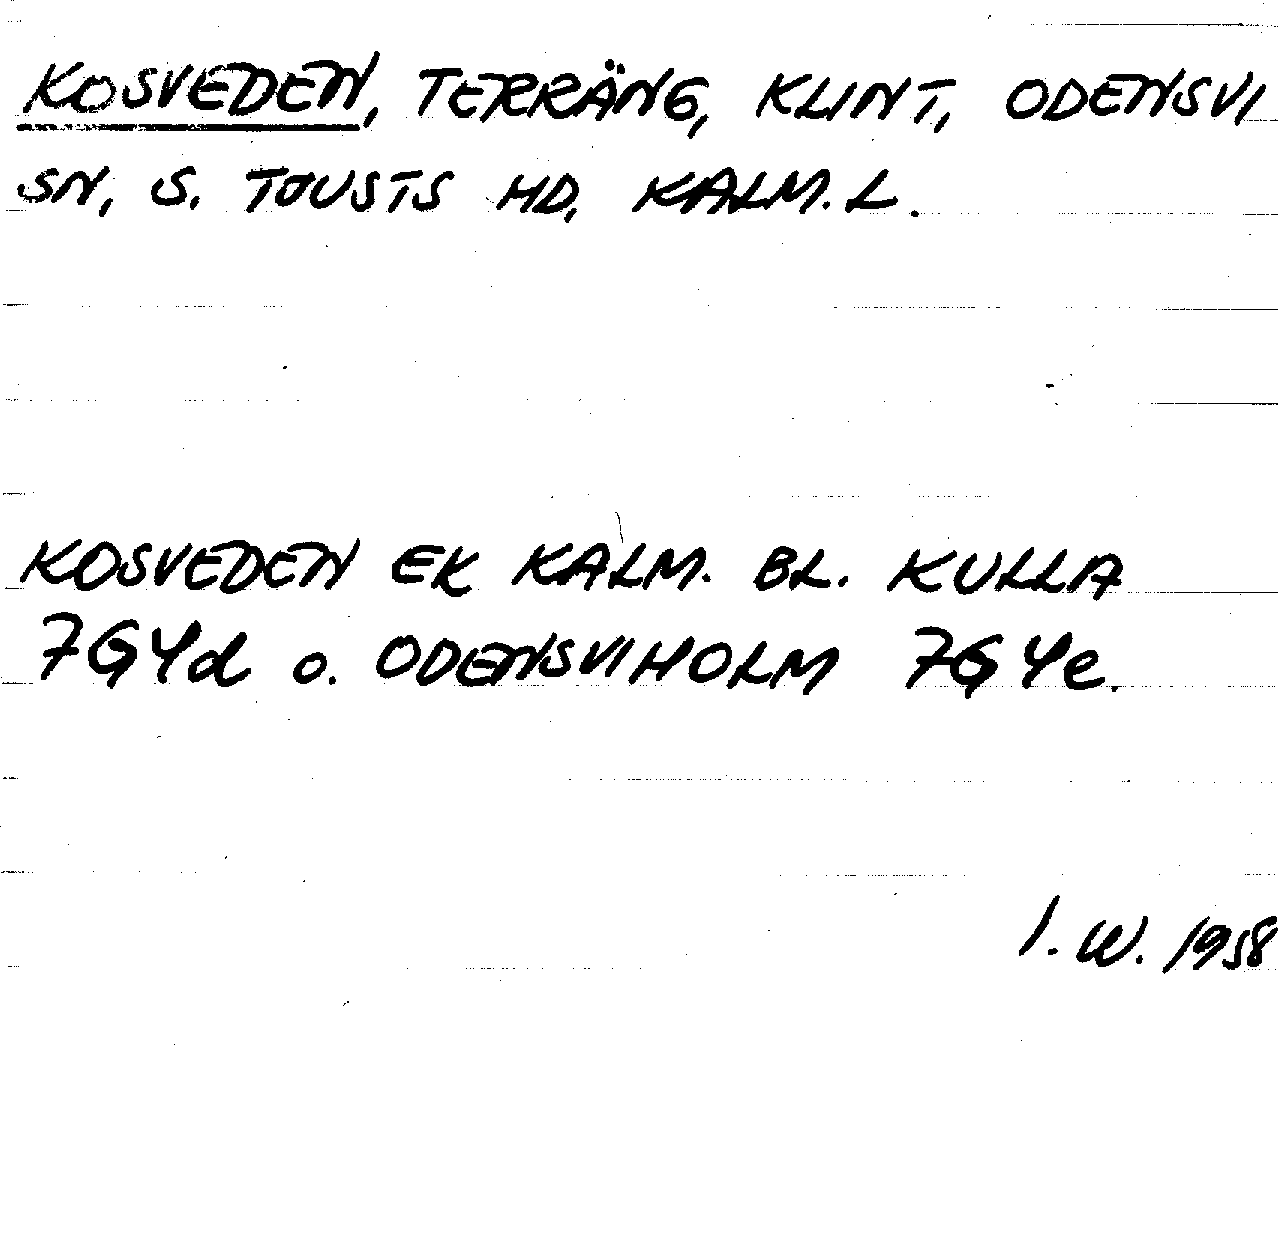 KOSVEDEN, TERRÄNG, KLINT, ODENSVI
SN, S. TJUSTS HD, KALM. L.
KOSVEDEN EK KALM. BL. KULLA
7G4d o. ODENSVIHOLM 7G4e.
I. W. 1958